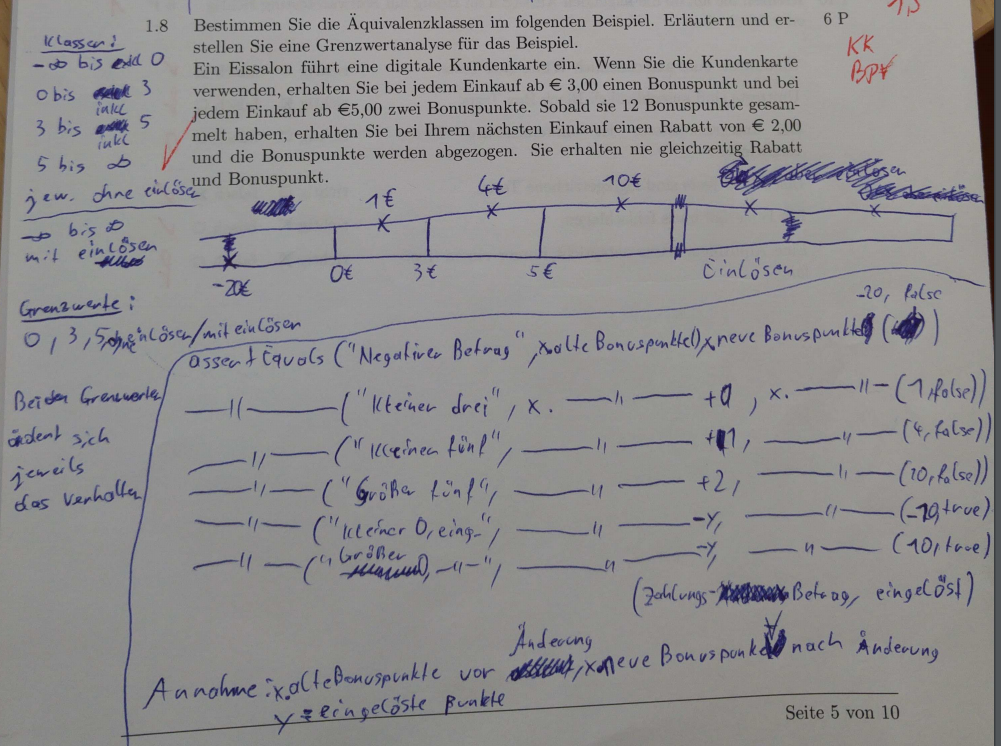 1.8 Bestimmen Sie die Äquivalenzklassen im folgenden Beispiel. Erläutern und er-
stellen Sie eine Grenzwertanalyse für das Beispiel.
6 P
Ein Eissalon führt eine digitale Kundenkarte ein. Wenn Sie die Kundenkarte
verwenden, erhalten Sie bei jedem Einkauf ab € 3,00 einen Bonuspunkt und bei
jedem Einkauf ab €5,00 zwei Bonuspunkte. Sobald sie 12 Bonuspunkte gesam-
melt haben, erhalten Sie bei Ihrem nächsten Einkauf einen Rabatt von € 2,00
und die Bonuspunkte werden abgezogen. Sie erhalten nie gleichzeitig Rabatt
und Bonuspunkt.
KK
Klassen:
-∞ bis 0
0 bis 3
inkl
3 bis 5
inkl
5 bis ∞
jew. ohne einlösen
-∞ bis ∞
mit einlösen
1€ 4€ 10€
-20€ 0€ 3€ 5€ Einlösen
Grenzwerte:
0, 3, 5, ohne einlösen/mit einlösen
Bei den Grenzwerten
ändert sich
jeweils
das Verhalten
-20, false
assertEquals ("Negativer Betrag", x.alteBonuspunkte(), x.neueBonuspunkte ( )
—"— ("Kleiner drei", x. —"— +0, x. —"— (1, false))
—"— ("Kleiner fünf", —"— +1, —"— (4, false))
—"— ("Größer fünf", —"— +2, —"— (10, false))
—"— ("Kleiner 0, eing.", —"— -y, —"— (-10, true)
—"— ("Größer 0, -"-", —"— -y, —"— (10, true)
(Zahlungs- Betrag, eingelöst)
Änderung
Annahme: x.alteBonuspunkte vor , x.neueBonuspunkte nach Änderung
y = eingelöste Punkte
Seite 5 von 10